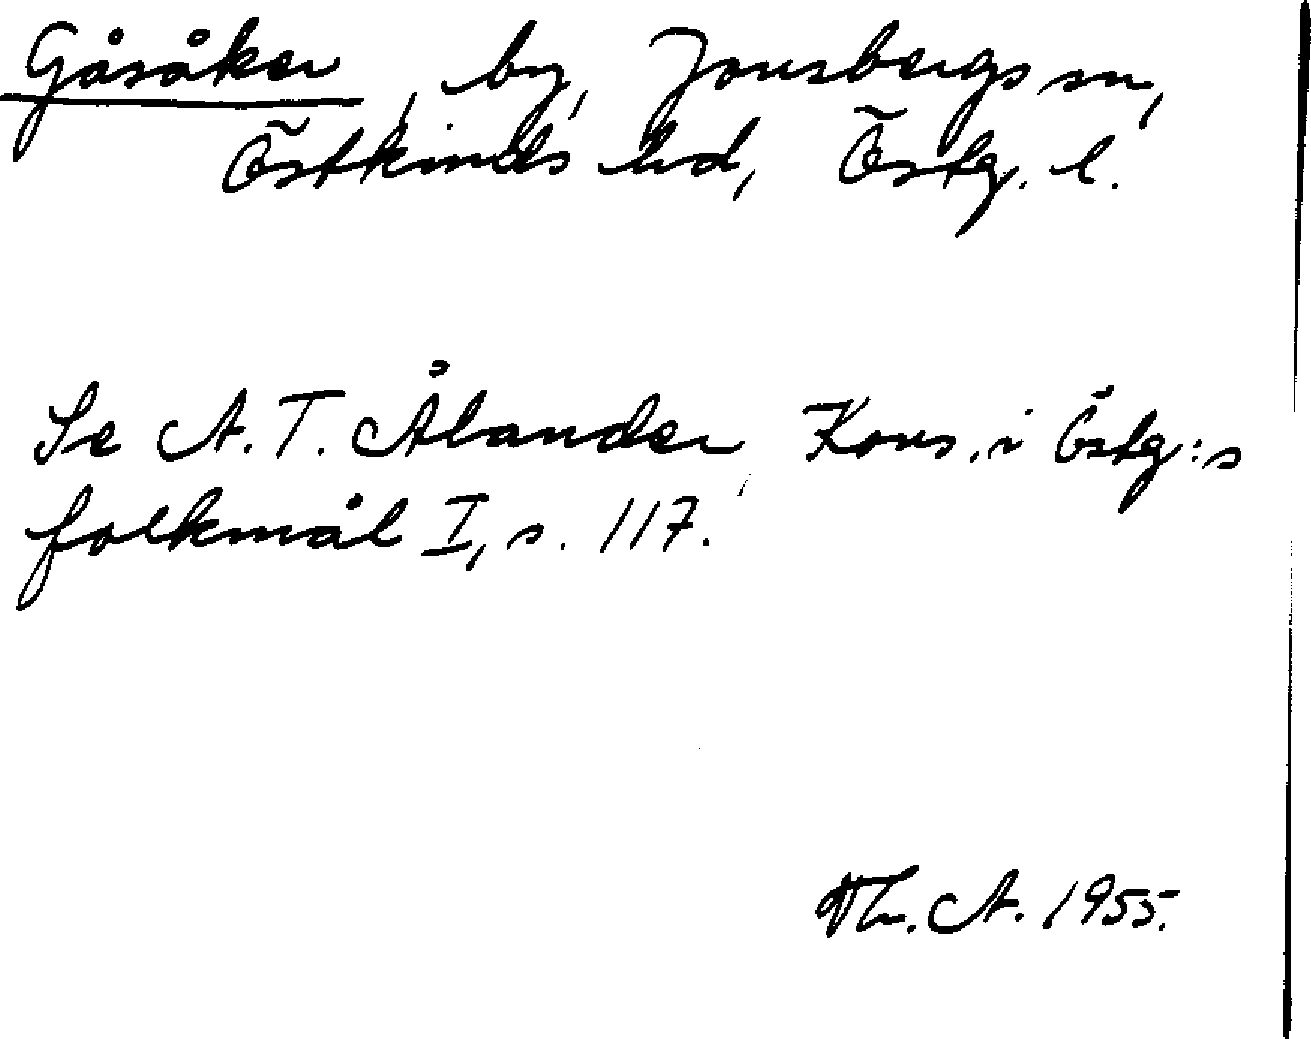 Gåsåker, by, Jonsbergs sn,
Östkinds hd, Östg. l.
Se A. T. Ålander, Kons. i Östg:s
folkmål I, s. 117.
Th. A. 1955.